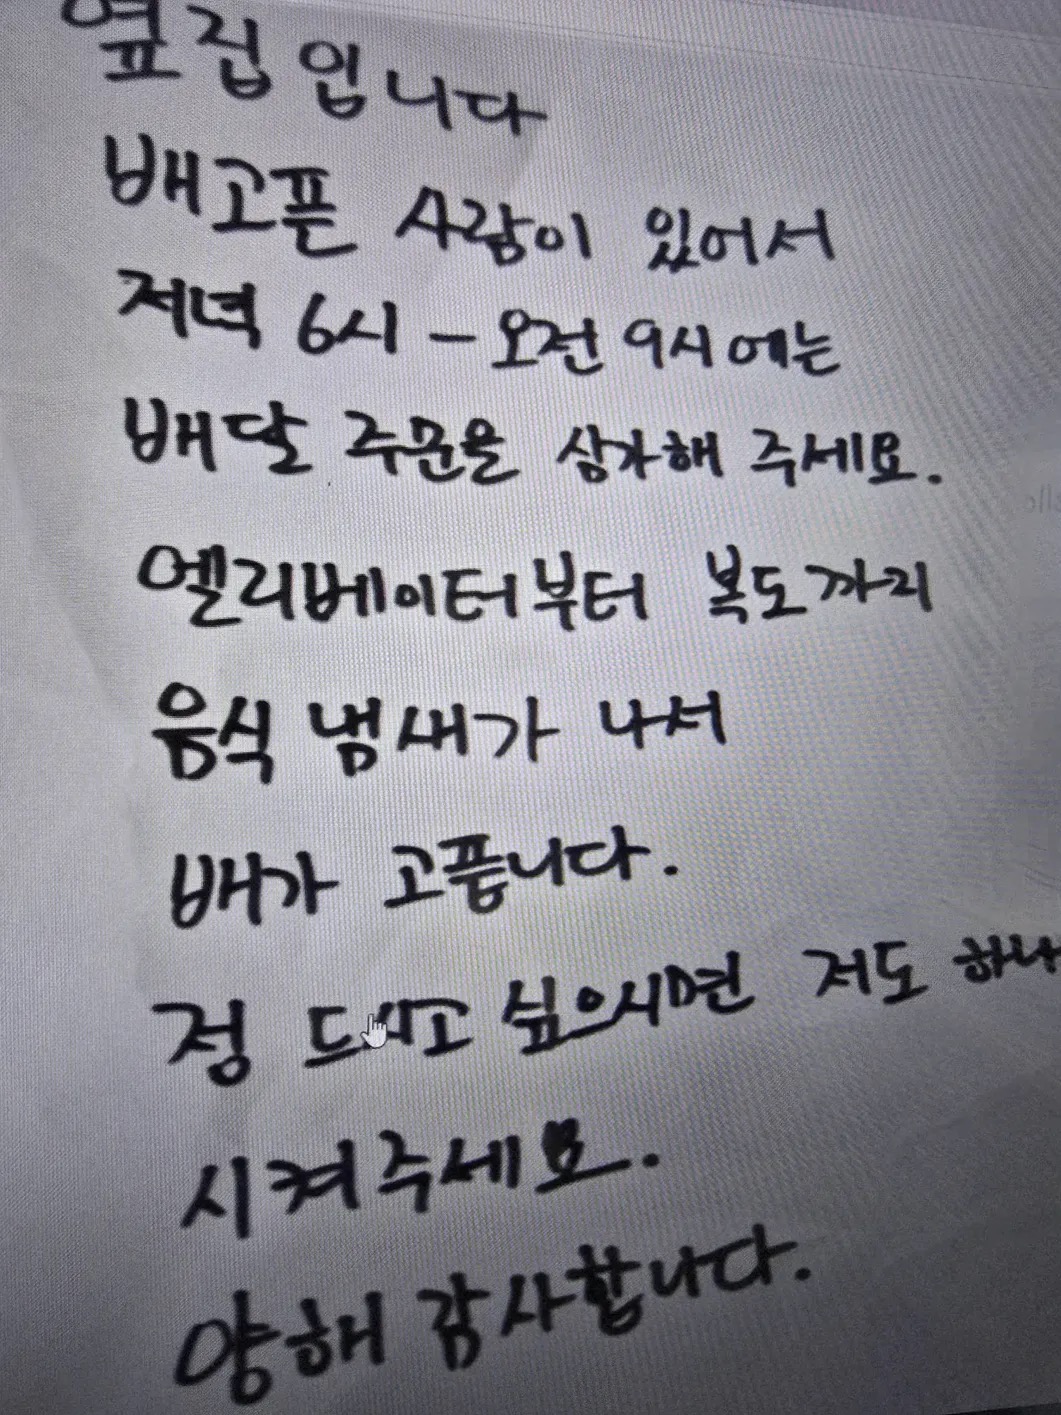 옆집입니다
배고픈 사람이 있어서
저녁 6시 - 오전 9시에는
배달 주문을 삼가해 주세요.
엘리베이터부터 복도까지
음식 냄새가 나서
배가 고픕니다.
정 드시고 싶으시면 저도 하나
시켜주세요.
양해 감사합니다.